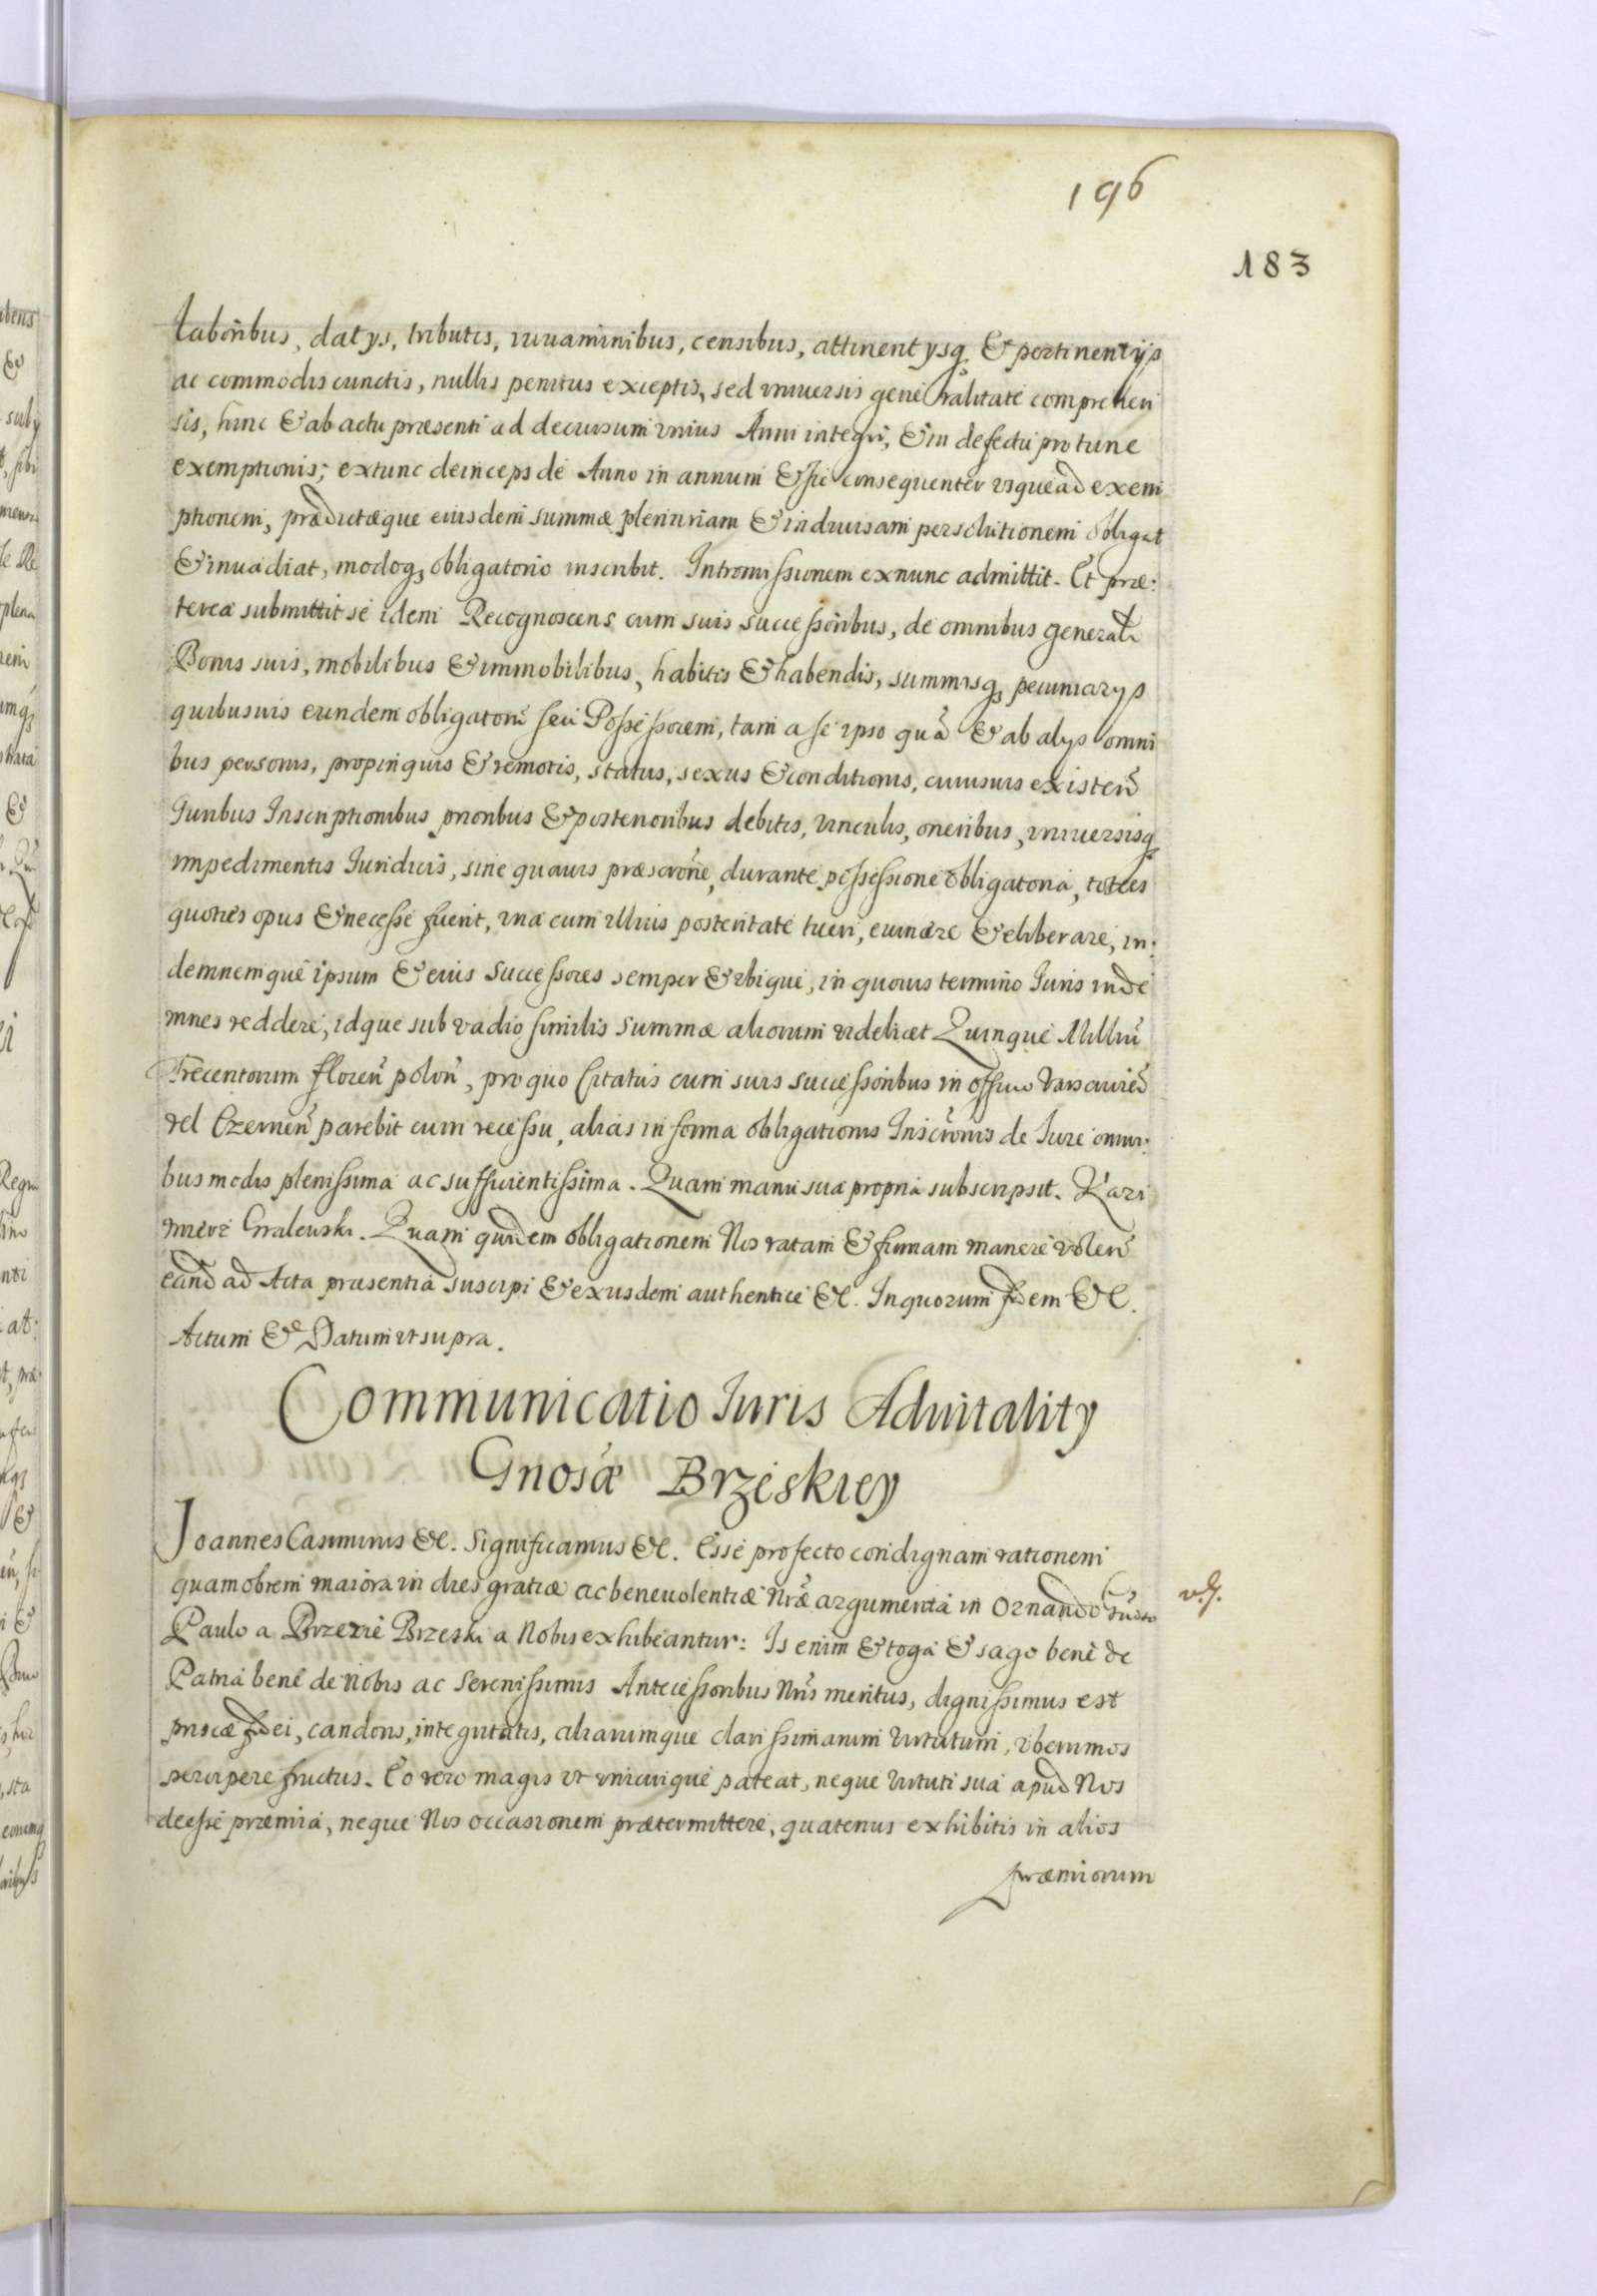 196
183
laboribus, datys, tributis, iuuaminibus, censibus, attinentysq₃ & pertinentijs
ac commodis cunctis, nullis penitus exceptis, sed vniuersis generalitate comprehen
sis, hinc & ab actu præsenti ad decursum vnius Anni integri, & in defectu pro tunc
exemptionis; extunc deinceps de Anno in annum & sic consequenter vsque ad exem
ptionem, prædictæque eiusdem summæ plenariam & indiuisam persolutionem obligat
& inuadiat, modoq₃ obligatorio inscribit. Intromissionem exnunc admittit. Et præ:
terea submittit se idem Recognoscens cum suis successoribus, de omnibus generalr
Bonis suis, mobilibus & immobilibus, habitis & habendis, summisq₃ pecuniarys
quibusuis eundem obligatoriũ seu Possessorem, tam a se ipso quã & ab alys omni
bus personis, propinquis & remotis, status, sexus & conditionis, cuiusuis existeñ
Iuribus Inscriptionibus prioribus & posterioribus debitis, vinculis, oneribus, vniuersisq₃
impedimentis Iuridicis, sine quauis præscrõne, durante possessione obligatoria, toties
quoties opus & necesse fuerit, vna cum illius posteritate tueri, euincere & eliberare, in:
demnemque ipsum & eius successores semper & vbique, in quouis termino Iuris inde
mnes reddere, idque sub vadio similis summæ aliorum videlicet Quinque Milliũ
Trecentorum floreñ poloñ, pro quo citatus cum suis successoribus in officio Varsauieñ
vel Czerneñ parebit cum recessu, alias in forma obligationis Inscrõnis de Iure omni:
bus modis plenissima ac sufficientissima. Quam manu sua propria subscripsit. Kazi
mierz Gralewski. Quam quidem obligationem Nos ratam & firmam manere voleñ
eand ad Acta præsentia suscipi & ex usdem authentice &c. In quorum fidem &c.
Actum & Datum vt supra.
Communicatio Iuris Aduitality
Gnosæ Brzeskiey
Joannes Casimirus &c. Significamus &c. Esse profecto condignam rationem
quamobrem maiora in dies gratiæ ac beneuolentiæ Nr̃æ argumenta in Ornando
v.G.
Paulo a Brzezie Brzeski a Nobis exhibeantur: Is enim & toga & sago bene de
Patria bene de Nobis ac Serenissimis Antecessoribus Nr̃is meritus, dignissimus est
priscæ fidei, candoris, integritatis, aliarumque clarissimarum Virtutum, vberrimos
percipere fructus. Eo vero magis vt vnicuique pateat, neque Virtuti sua apud Nos
deesse præmia, neque Nos occasionem prætermittere, quatenus exhibitis in alios
præmiorum